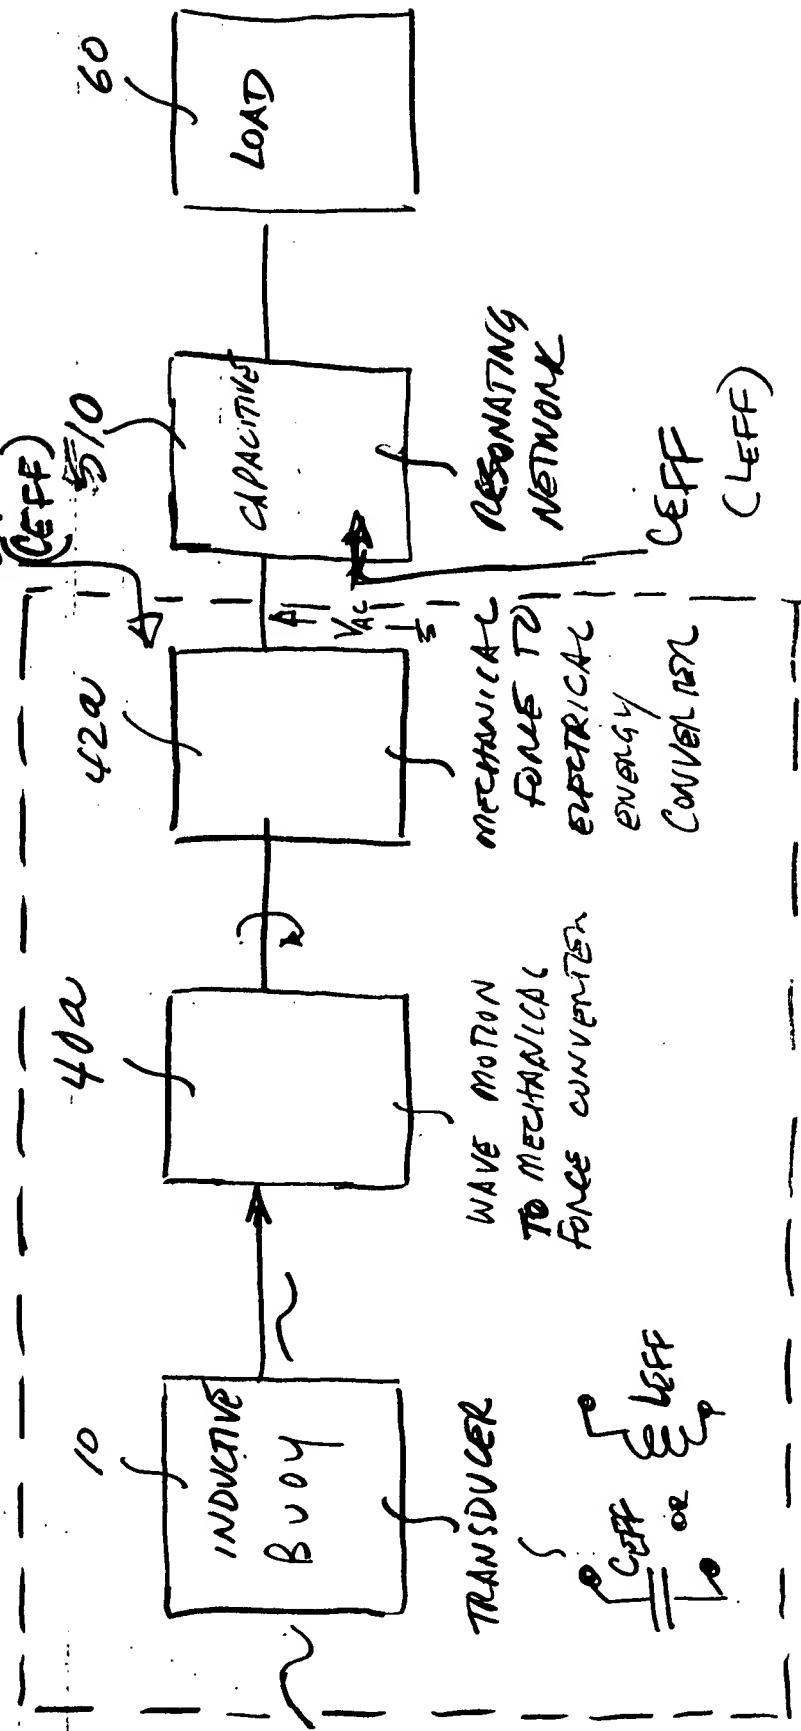 10
INDUCTIVE
BUOY
TRANSDUCER
CEFF
OR
LEFF
40a
WAVE MOTION
TO MECHANICAL
FORCE CONVERTER
42a
MECHANICAL
FORCE TO
ELECTRICAL
ENERGY
CONVERTER
(CEFF)
VAC
510
CAPACITIVE
RESONATING
NETWORK
CEFF
(LEFF)
60
LOAD